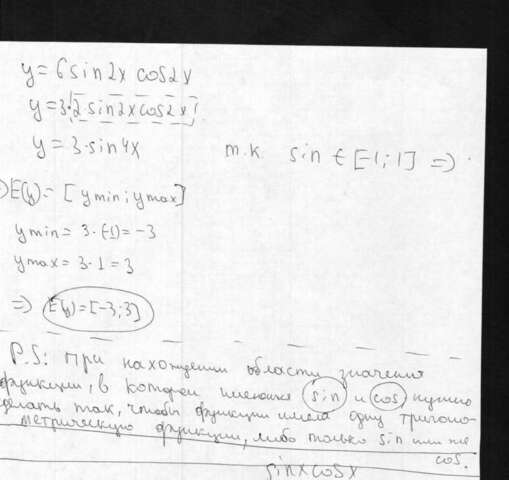 y = 6 sin2x cos2x
y = 3·2·sin2x cos2x
y = 3·sin4x т.к. sin ∈ [-1; 1] =>
E(y) = [ymin; ymax]
ymin = 3·(-1) = -3
ymax = 3·1 = 3
=> E(y) = [-3; 3]
P.S: При нахождении области значения
функции, в которой имеются sin и cos нужно
сделать так, чтобы функции имела одну тригоно-
метрическую функцию, либо только sin или же
cos.
sinxcosx